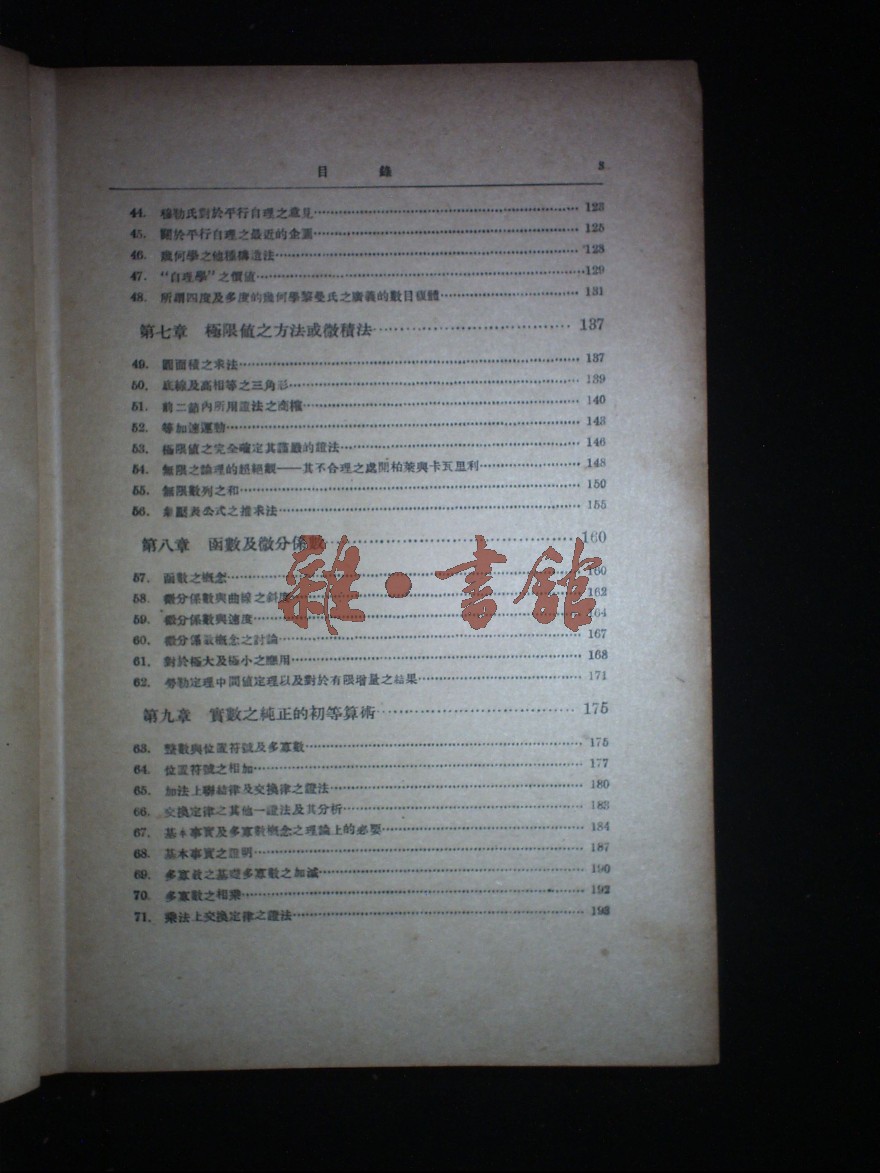 目 錄 3
44. 穆勒氏對於平行自理之意見 123
45. 關於平行自理之最近的企圖 125
46. 幾何學之他種構造法 128
47. “自理學”之價值 129
48. 所謂四度及多度的幾何學黎曼氏之廣義的數目複體 131
第七章 極限值之方法或微積法 137
49. 圓面積之求法 137
50. 底線及高相等之三角形 139
51. 前二節內所用證法之商榷 140
52. 等加速運動 143
53. 極限值之完全確定其謹嚴的證法 146
54. 無限之論理的超絕觀——其不合理之處開柏萊與卡瓦里利 148
55. 無限數列之和 150
56. 氣壓表公式之推求法 155
第八章 函數及微分係數 160
57. 函數之概念 160
58. 微分係數與曲線之斜度 162
59. 微分係數與速度 164
60. 微分係數概念之討論 167
61. 對於極大及極小之應用 168
62. 勞勒定理中間值定理以及對於有限增量之結果 171
第九章 實數之純正的初等算術 175
63. 整數與位置符號及多寡數 175
64. 位置符號之相加 177
65. 加法上聯結律及交換律之證法 180
66. 交換定律之其他一證法及其分析 183
67. 基本事實及多寡數概念之理論上的必要 184
68. 基本事實之證明 187
69. 多寡數之基礎多寡數之加減 190
70. 多寡數之相乘 192
71. 乘法上交換定律之證法 193
雜·書館